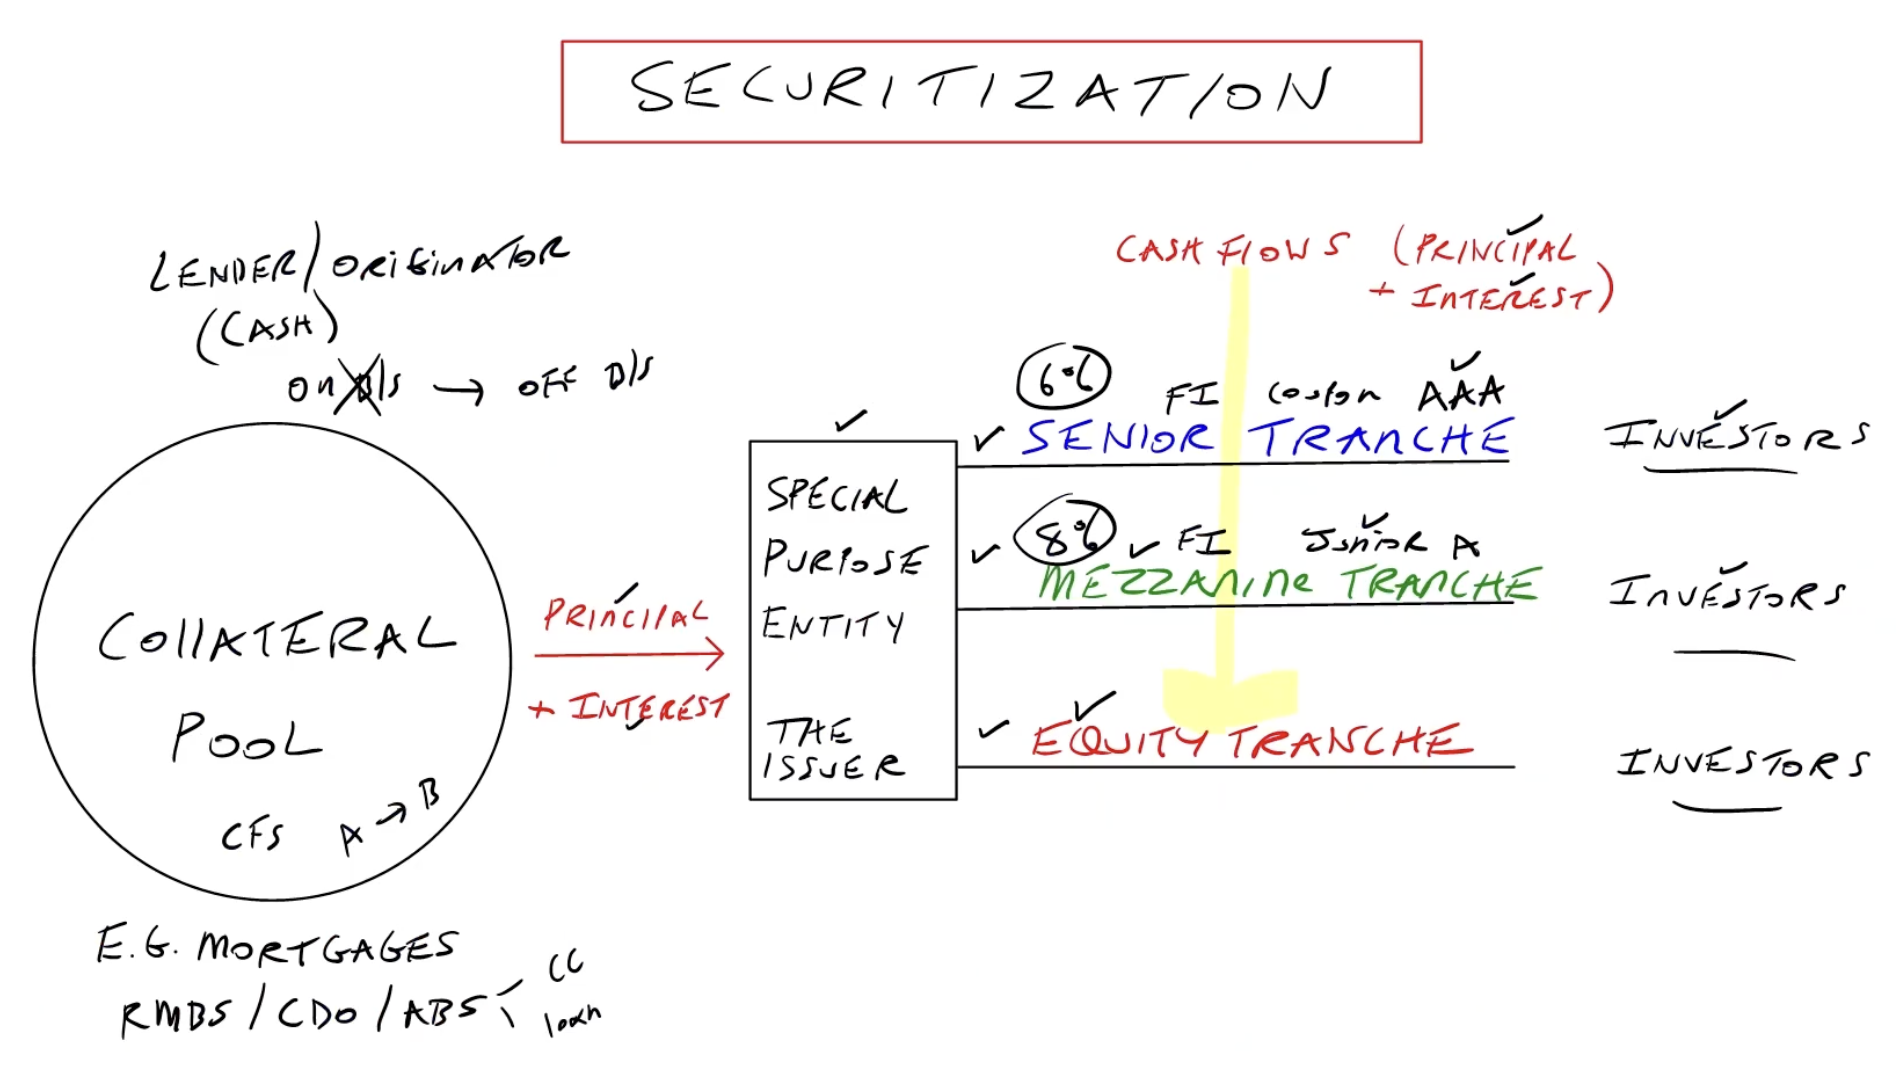 SECURITIZATION
LENDER/ORIGINATOR
(CASH)
on B/S → OFF B/S
COllATERAL
POOL
CFS A → B
E.G. MORTGAGES
RMBS / CDO / ABS
CC
loan
PRINCIPAL
+ INTEREST
SPECIAL
PURPOSE
ENTITY
THE
ISSUER
CASH FlOWS (PRINCIPAL
+ INTEREST)
6% FI Coupon AAA
SENIOR TRANCHE
INVESTORS
8% FI Junior A
MEZZANINE TRANCHE
INVESTORS
EQUITY TRANCHE
INVESTORS